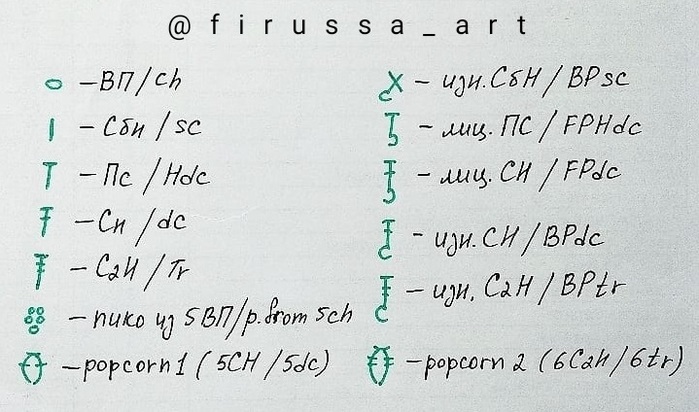 @firussa_art
– ВП/ch
– Сбн/sc
– Пс/Hdc
– Сн/dc
– С2Н/Tr
– пико из 5ВП/p.from 5ch
– popcorn 1 (5СН/5dc)
– изн. СбН/BPsc
– лиц. ПС/FPHdc
– лиц. СН/FPdc
– изн. СН/BPdc
– изн. С2Н/BPtr
– popcorn 2 (6С2Н/6tr)